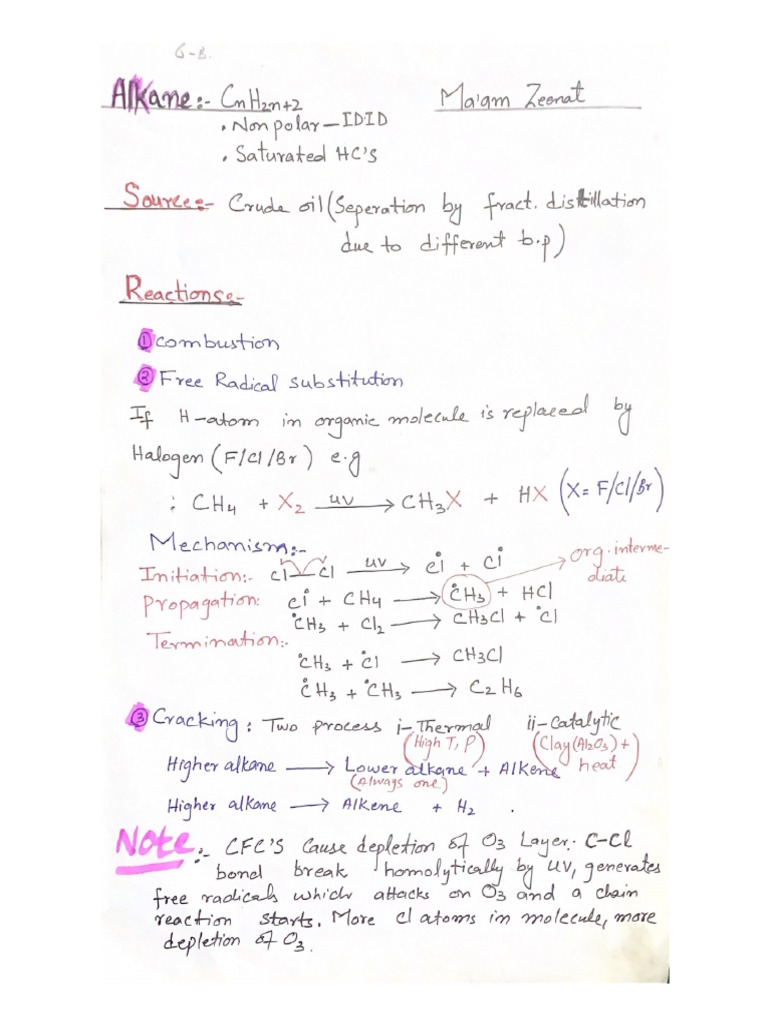 6-B.
Alkane:- CnH2n+2 Ma'am Zeenat
• Nonpolar-IDID
• Saturated HC'S
Source:- Crude oil (Seperation by fract. distillation
due to different b.p)
Reactions:-
① Combustion
② Free Radical substitution
If H-atom in organic molecule is replaced by
Halogen (F/Cl/Br) e.g
: CH4 + X2 uv → CH3X + HX (X= F/Cl/Br)
Mechanism:-
Initiation:- Cl—Cl uv → Cl• + Cl• org. interme-
diate
Propagation: Cl• + CH4 → •CH3 + HCl
•CH3 + Cl2 → CH3Cl + •Cl
Termination:-
•CH3 + •Cl → CH3Cl
•CH3 + •CH3 → C2H6
③ Cracking: Two process i-Thermal ii-Catalytic
(High T, P) (Clay (Al2O3) + heat)
Higher alkane → Lower alkane + Alkene
(Always one)
Higher alkane → Alkene + H2 .
Note:- CFC'S cause depletion of O3 Layer: C-Cl
bond break homolytically by UV, generates
free radicals which attacks on O3 and a chain
reaction starts. More Cl atoms in molecule, more
depletion of O3.